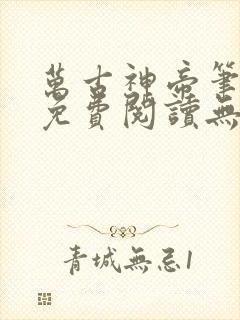 萬古神帝筆
免費閱讀無
青城無忌1